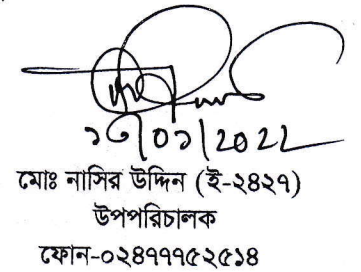 ১৩/০১/2022
মোঃ নাসির উদ্দিন (ই-২৪২৭)
উপপরিচালক
ফোন-০২৪৭৭৭৫২৫১৪